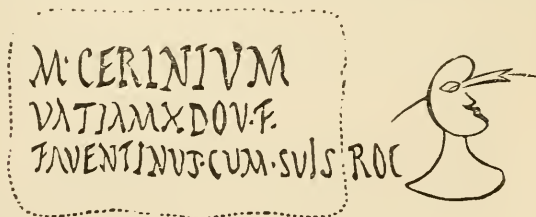 M·CERINIVM
VATIAMXDOV·F·
FAVENTINVS·CUM·SVIS ROC